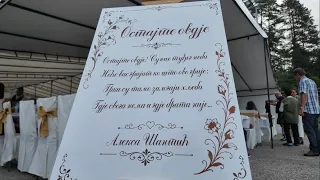 Остајте овдје
Остајте овдје! Сунце туђег неба
Неће вас гријат ко што ово грије;
Грки су тамо залогаји хљеба
Гдје свога нема и гдје брата није.
Алекса Шантић